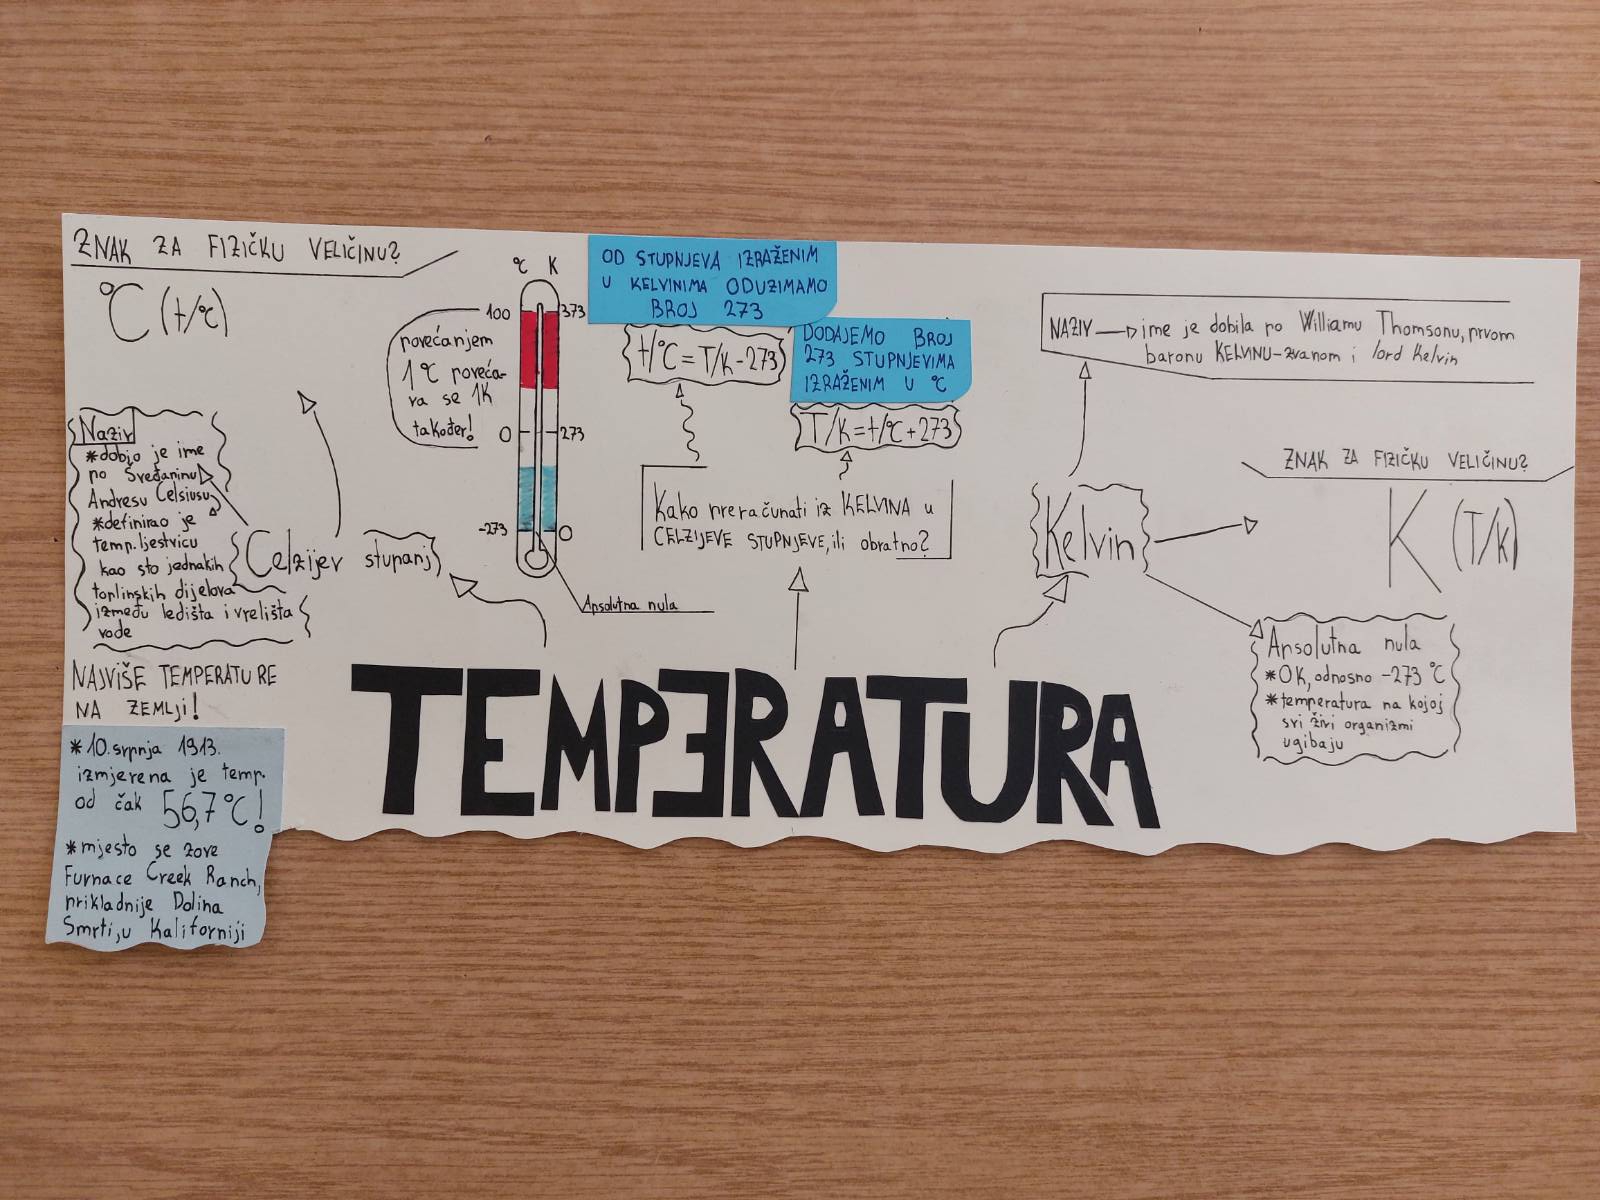 ZNAK ZA FIZIČKU VELIČINU?
°C (t/°C)
Naziv
*dobio je ime
po Šveđaninu
Andresu Celsiusu
*definirao je
temp. ljestvicu
kao sto jednakih
toplinskih dijelova
između ledišta i vrelišta
vode
Celzijev stupanj
NAJVIŠE TEMPERATURE
NA ZEMLJI!
*10. srpnja 1913.
izmjerena je temp.
od čak 56,7°C!
*mjesto se zove
Furnace Creek Ranch,
prikladnije Dolina
Smrti, u Kaliforniji
povećanjem
1°C poveća-
va se 1K
također!
°C K
100 373
0 273
-273 0
Apsolutna nula
OD STUPNJEVA IZRAŽENIM
U KELVINIMA ODUZIMAMO
BROJ 273
t/°C = T/K - 273
DODAJEMO BROJ
273 STUPNJEVIMA
IZRAŽENIM U °C
T/K = t/°C + 273
Kako preračunati iz KELVINA u
CELZIJEVE STUPNJEVE, ili obratno?
TEMPERATURA
NAZIV → ime je dobila po Williamu Thomsonu, prvom
baronu KELVINU-zvanom i lord Kelvin
Kelvin
ZNAK ZA FIZIČKU VELIČINU?
K (T/K)
Apsolutna nula
*0K, odnosno -273 °C
*temperatura na kojoj
svi živi organizmi
ugibaju